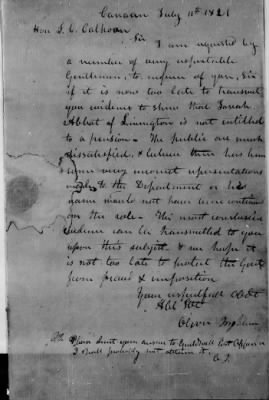 Canaan July 11th 1821
Hon J. C. Calhoun
Sir
I am requested by
a number of very respectable
Gentlemen, to enquire of you, Sir
if it is now too late to transmit
you evidence to shew that Josiah
Abbot of Lunington is not entitled
to a pension. The public are much
dissatisfied, & believe there has been
some very incorrect representations
made to the Department or his
name would not have been continued
on the role. The most conclusive
evidence can be transmitted to you
upon this subject & we hope it
is not too late to protect the Govt
from fraud & imposition
Your respectfull Obdt
Hbl Svt
Oliver
Please direct your answer to Guildhall Post Office or
I shall probably not obtain it. O. I.